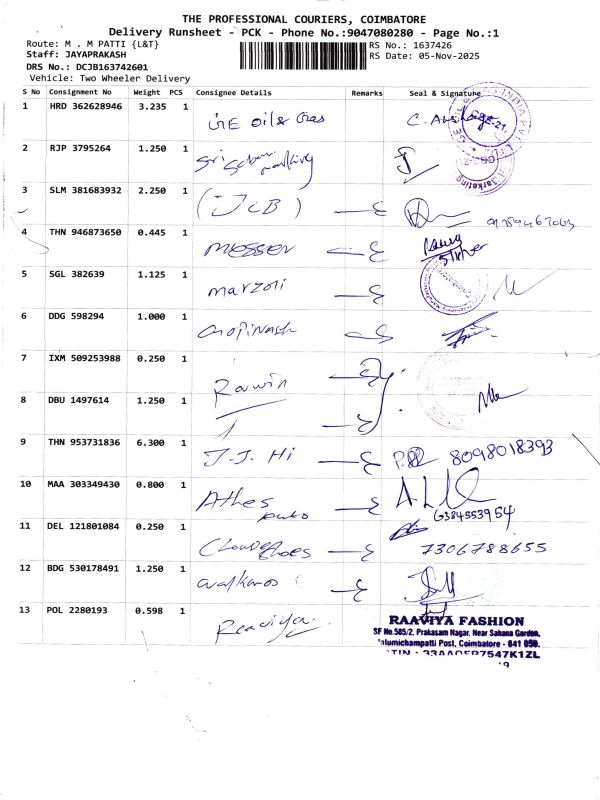 THE PROFESSIONAL COURIERS, COIMBATORE
Delivery Runsheet - PCK - Phone No.:9047080280 - Page No.:1
Route: M . M PATTI {L&T}
RS No.: 1637426
Staff: JAYAPRAKASH
RS Date: 05-Nov-2025
DRS No.: DCJB163742601
Vehicle: Two Wheeler Delivery
S No Consignment No Weight PCS Consignee Details Remarks Seal & Signature
1 HRD 362628946 3.235 1 GE Oil & Gas
2 RJP 3795264 1.250 1 Sri
3 SLM 381683932 2.250 1 (JCB)
4 THN 946873650 0.445 1 Messer
5 SGL 382639 1.125 1 marzoli
6 DDG 598294 1.000 1 Gopinash
7 IXM 509253988 0.250 1 Rauwin
8 DBU 1497614 1.250 1
9 THN 953731836 6.300 1 J.J. Hi 8098018393
10 MAA 303349430 0.800 1 Athes
6384553954
11 DEL 121801084 0.250 1 7306788655
12 BDG 530178491 1.250 1
13 POL 2280193 0.598 1 Raaviya
RAAVIYA FASHION
SF No.585/2, Prakasam Nagar, Near Sahana Garden,
alumichampatti Post, Coimbatore - 641 050.